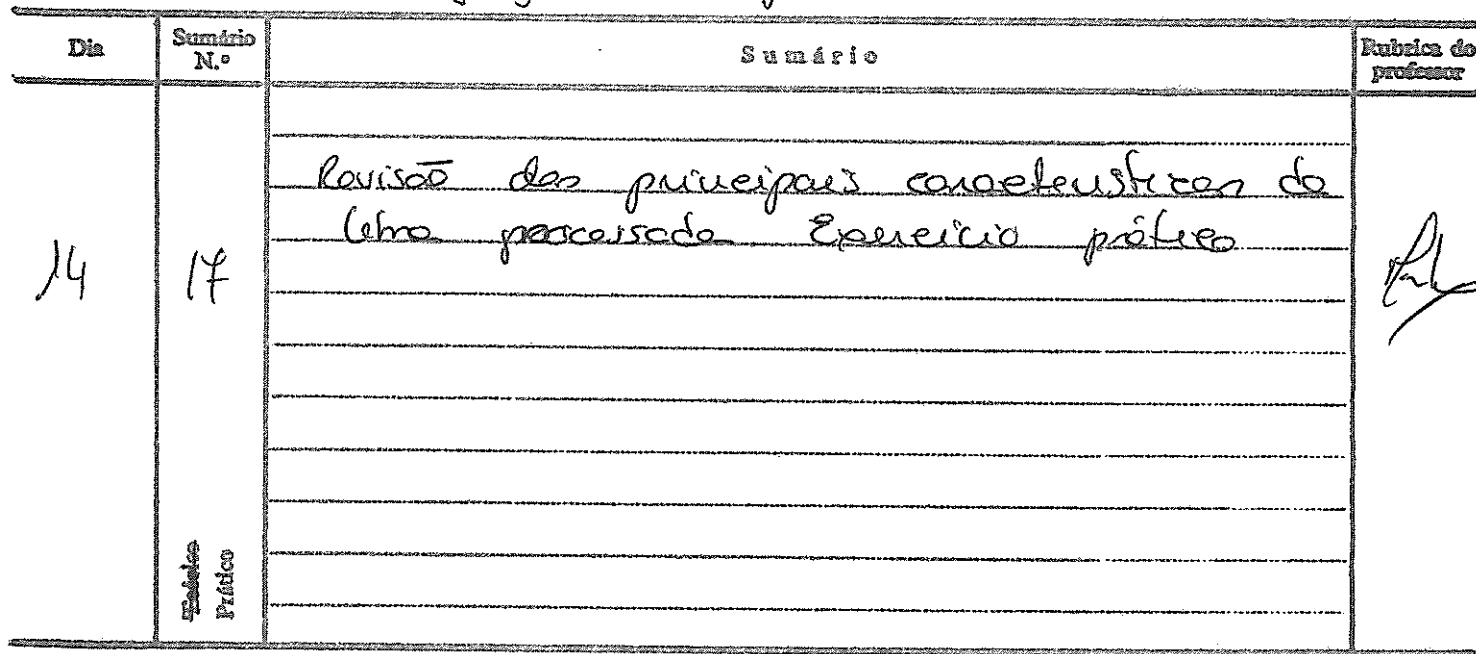 Dia
Sumário N.º
Sumário
Rubrica do professor
14
17
Revisão das principais características da
letra processada Exercício prático
Teórico
Prático